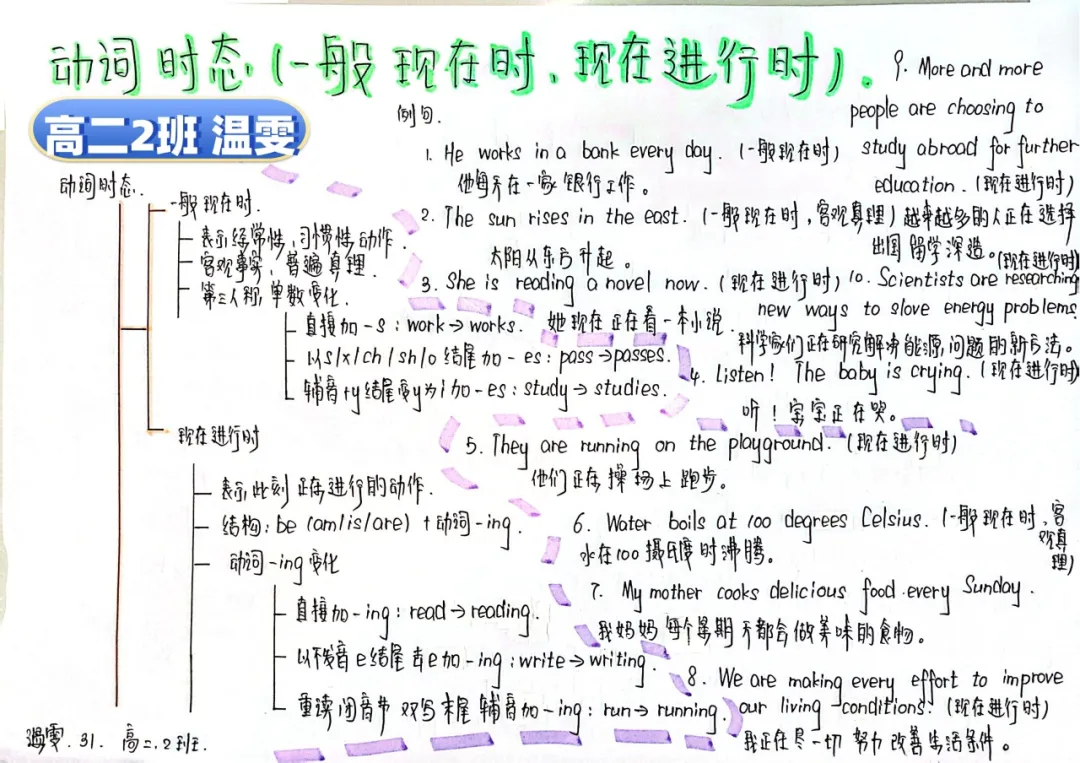 动词时态(一般现在时、现在进行时)。
高二2班 温雯
动词时态.
一般现在时.
表示经常性、习惯性动作.
客观事实、普遍真理.
第三人称,单数变化.
直接加-s:work→works.
以s/x/ch/sh/o结尾加-es:pass→passes.
辅音+y结尾变y为i加-es:study→studies.
现在进行时
表示此刻正在进行的动作.
结构:be (am/is/are) + 动词-ing.
动词-ing变化
直接加-ing:read→reading.
以不发音e结尾去e加-ing:write→writing.
重读闭音节双写末尾辅音加-ing:run→running.
温雯.31.高二.2班.
例句.
1. He works in a bank every day. (一般现在时)
他每天在一家银行工作。
2. The sun rises in the east. (一般现在时,客观真理)
太阳从东方升起。
3. She is reading a novel now. (现在进行时)
她现在正在看一本小说.
4. Listen! The baby is crying. (现在进行时)
听!宝宝正在哭。
5. They are running on the playground. (现在进行时)
他们正在操场上跑步。
6. Water boils at 100 degrees Celsius. (一般现在时,客观真理)
水在100摄氏度时沸腾。
7. My mother cooks delicious food every Sunday.
我妈妈每个星期天都会做美味的食物。
8. We are making every effort to improve
our living conditions. (现在进行时)
我正在尽一切努力改善生活条件。
9. More and more
people are choosing to
study abroad for further
education. (现在进行时)
越来越多的人正在选择
出国留学深造。
10. Scientists are researching (现在进行时)
new ways to slove energy problems.
科学家们正在研究解决能源问题的新方法。